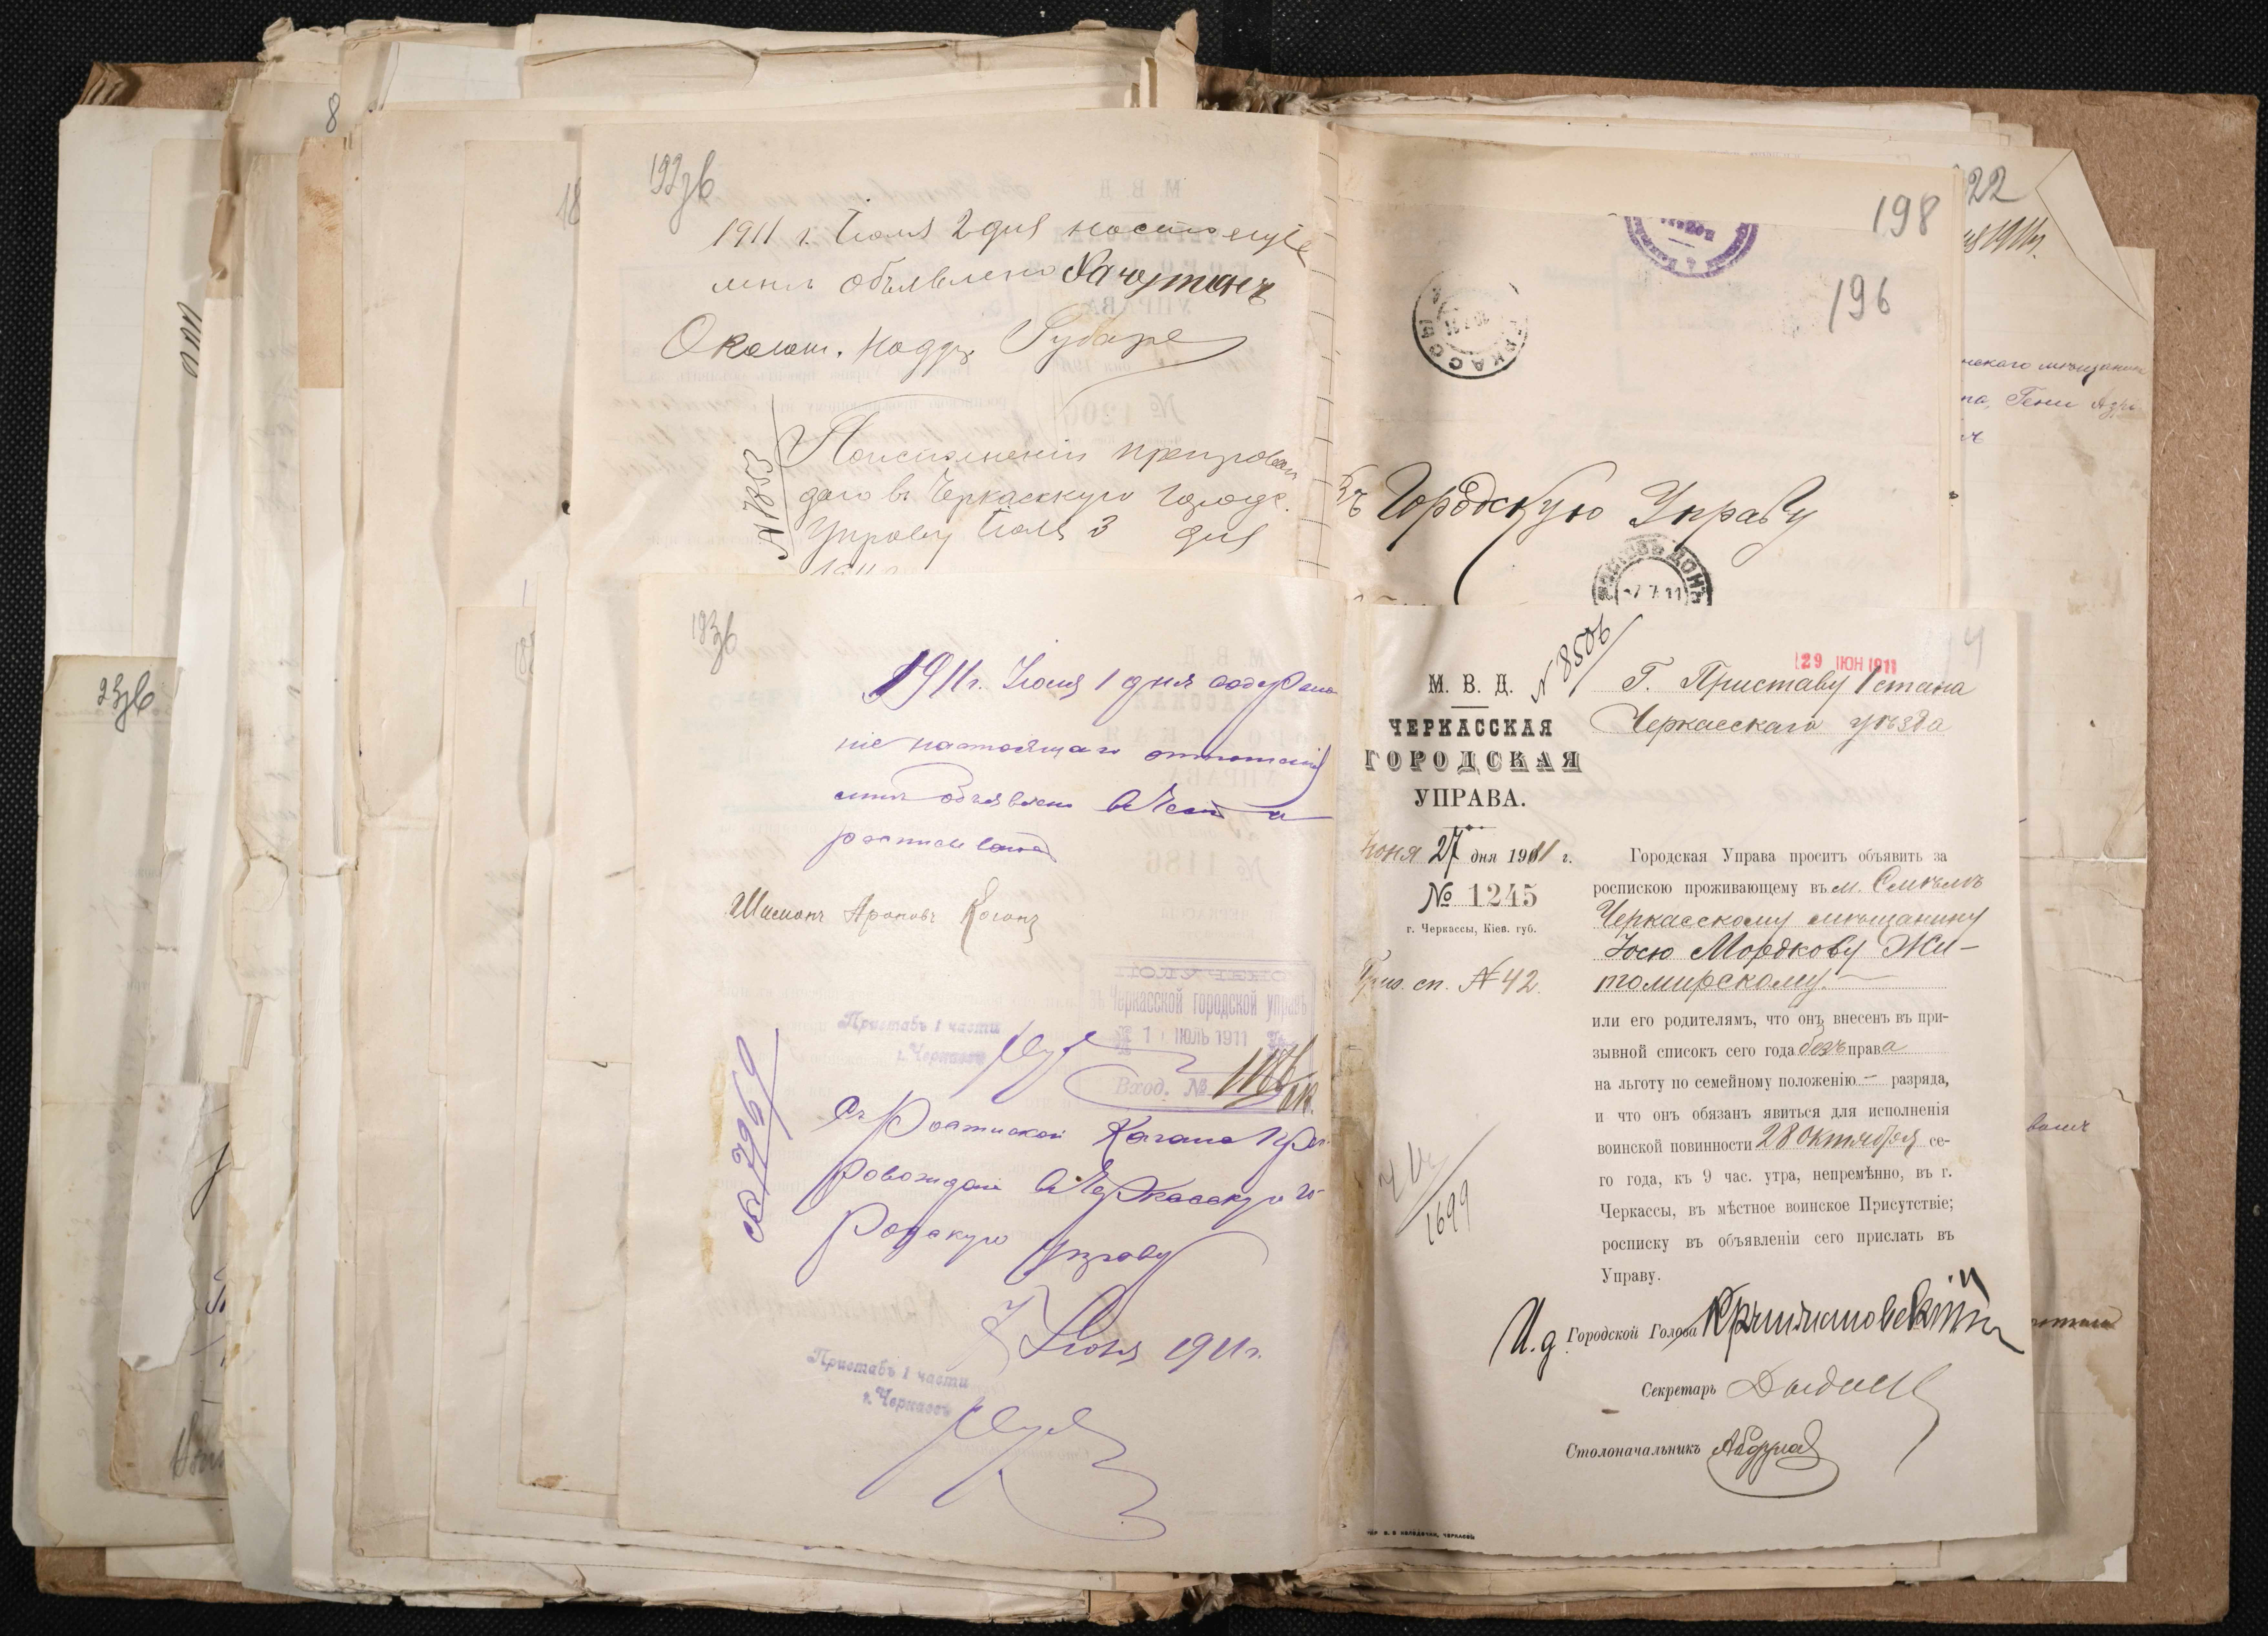 8
192зв
1911 г. Іюля 2 дня настоящее
мнѣ объявлено
Околот. надз.
№ 7853
По исполненіи препровож
даю въ Черкасскую городс.
Управу Іюля 3 дня
193зв
1911 г. Іюля 1 дня содержа
ніе настоящаго отношенія
мнѣ объявлено въ чемъ и
росписываюсь
Шимонъ Ароновъ Коганъ
ПОЛУЧЕНО
Черкасской городской управ
1 ІЮЛЬ 1911
Вход. № 1186
Приставъ 1 части
г. Черкассъ
№ 7969
Съ Роспиской Когана Преп
ровождаю въ Черкасскую Го-
родскую Управу
1911 г.
Приставъ 1 части
г. Черкассъ
23зв
198
196
ЧЕРКАССЫ
Въ Городскую Управу
РОСТОВЪ ДОНЪ
7 7 11
22
1911 г.
нскаго мѣщанина
М. В. Д.
ЧЕРКАССКАЯ
ГОРОДСКАЯ
УПРАВА.
Іюня 27 дня 1911 г.
№ 1245
г. Черкассы, Кіев. губ.
Приз. сп. № 42.
1699
№ 8506
29 ІЮН 1911
Г. Приставу 1 стана
Черкасскаго уѣзда
Городская Управа проситъ объявить за
роспискою проживающему въ м. Смѣлѣ
Черкасскому мѣщанину
Іосю Мордкову Жи-
томирскому.
или его родителямъ, что онъ внесенъ въ при-
зывной списокъ сего года безъ права
на льготу по семейному положенію — разряда,
и что онъ обязанъ явиться для исполненія
воинской повинности 28 Октября се-
го года, къ 9 час. утра, непремѣнно, въ г.
Черкассы, въ мѣстное воинское Присутствіе;
росписку въ объявленіи сего прислать въ
Управу.
И. д. Городской Голова
Секретарь
Столоначальникъ